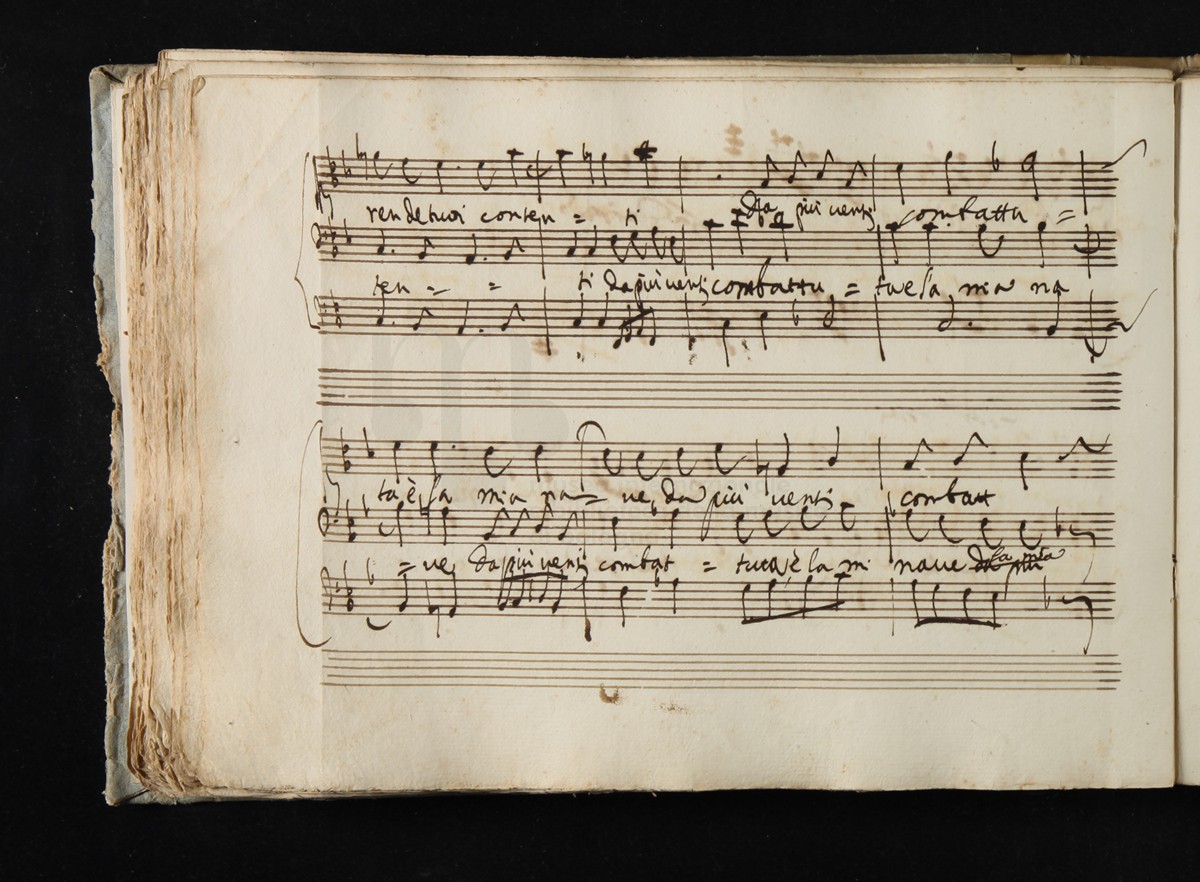 rendetevi conten = ti da più venti combattu =
ten = = ti da più venti combattu = ta e la mia na
ta è la mia na = ve, da più venti combatt
= ve da più venti combat = tuta, è la mi naue la mia